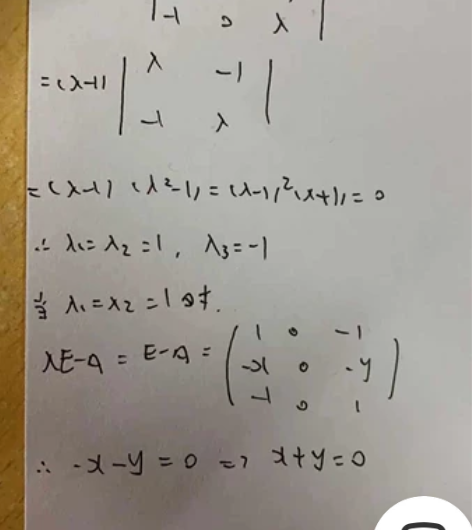 | -1 0 λ |
= (λ-1) | λ -1 |
| -1 λ |
= (λ-1) (λ²-1) = (λ-1)²(λ+1) = 0
∴ λ₁ = λ₂ = 1, λ₃ = -1
当 λ₁ = λ₂ = 1 时.
λE-A = E-A = ( 1 0 -1
-x 0 -y
-1 0 1 )
∴ -x-y = 0 => x+y = 0